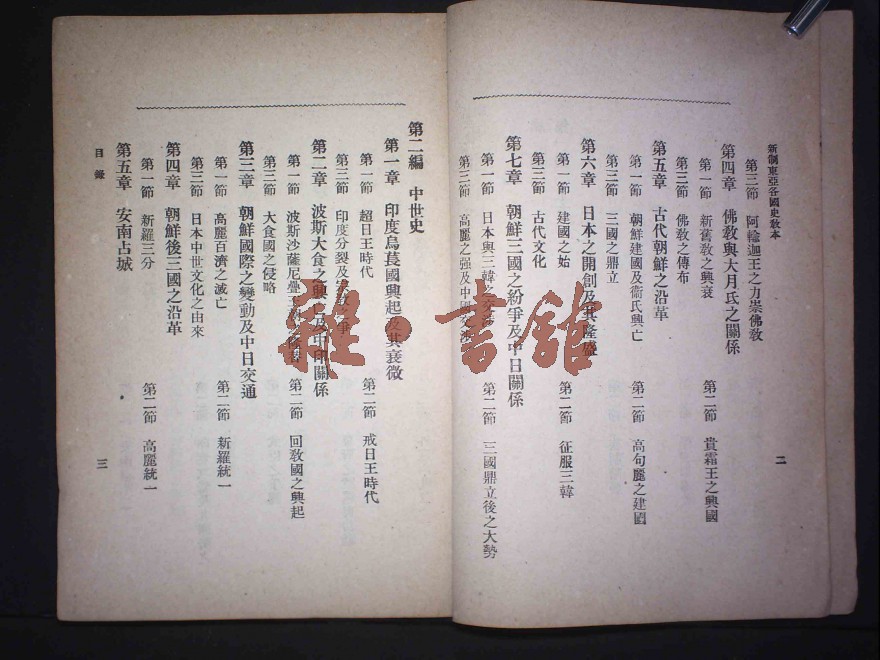 新制東亞各國史教本
第三節 阿輸迦王之力崇佛教
第四章 佛教與大月氏之關係
第一節 新舊教之興衰 第二節 貴霜王之興國
第三節 佛教之傳布
第五章 古代朝鮮之沿革
第一節 朝鮮建國及衞氏興亡 第二節 高句麗之建國
第三節 三國之鼎立
第六章 日本之開創及其隆盛
第一節 建國之始 第二節 征服三韓
第三節 古代文化
第七章 朝鮮三國之紛爭及中日關係
第一節 日本與三韓之交涉 第二節 三國鼎立後之大勢
第三節 高麗之强及中國交涉
二
第二編 中世史
第一章 印度烏萇國興起及其衰微
第一節 超日王時代 第二節 戒日王時代
第三節 印度分裂及宗教之爭
第二章 波斯大食之興亡及中印關係
第一節 波斯沙薩尼疊王朝之 第二節 回教國之興起
第三節 大食國之侵略
第三章 朝鮮國際之變動及中日交通
第一節 高麗百濟之滅亡 第二節 新羅統一
第三節 日本中世文化之由來
第四章 朝鮮後三國之沿革
第一節 新羅三分 第二節 高麗統一
第五章 安南占城
目錄
三
書館